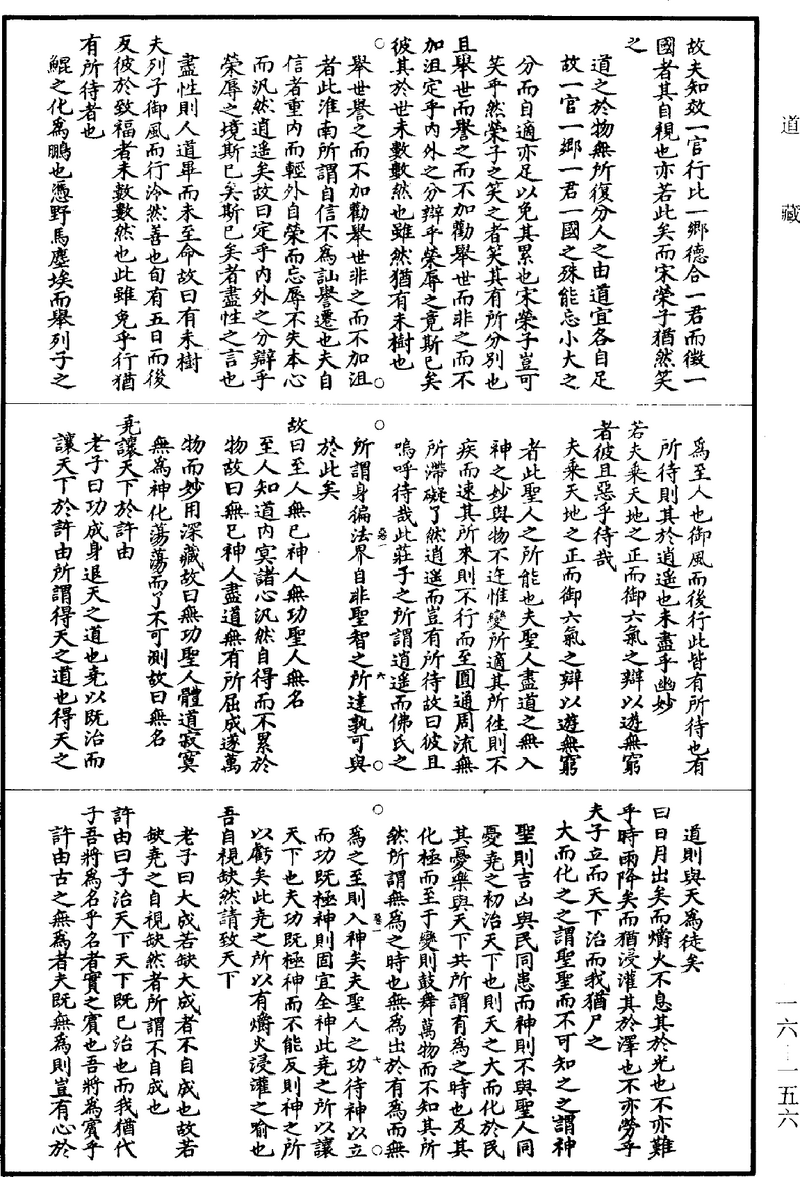 道藏
故夫知效一官行比一鄉德合一君而徵一
國者其自視也亦若此矣而宋榮子猶然笑
之
道之於物無所復分人之由道宜各自足
故一官一鄉一君一國之殊能忘小大之
分而自適亦足以免其累也宋榮子豈可
笑乎然榮子之笑之者笑其有所分別也
且舉世而譽之而不加勸舉世而非之而不
加沮定乎內外之分辯乎榮辱之竟斯已矣
彼其於世未數數然也雖然猶有未樹也
舉世譽之而不加勸舉世非之而不加沮
者此淮南所謂自信不為訕譽遷也夫自
信者重內而輕外自榮而忘辱不失本心
而汎然逍遥矣故曰定乎內外之分辯乎
榮辱之境斯已矣斯已矣者盡性之言也
盡性則人道畢而未至命故曰有未樹
夫列子御風而行泠然善也旬有五日而後
反彼於致福者未數數然也此雖免乎行猶
有所待者也
鯤之化為鵬也憑野馬塵埃而舉列子之
為至人也御風而後行此皆有所待也有
所待則其於逍遥也未盡乎幽妙
若夫乘天地之正而御六氣之辯以遊無窮
者彼且惡乎待哉
夫乘天地之正而御六氣之辯以遊無窮
者此聖人之所能也夫聖人盡道之無入
神之妙與物不迕惟變所適其所徃則不
疾而速其所來則不行而至圓通周流無
所滯礙了然逍遥而豈有所待故曰彼且
嗚呼待哉此莊子之所謂逍遥而佛氏之
所謂身徧法界自非聖智之所達孰可與
於此矣
故曰至人無已神人無功聖人無名
至人知道內冥諸心汎然自得而不累於
物故曰無已神人盡道無有所屈成遂萬
物而妙用深藏故曰無功聖人體道寂寞
無為神化蕩蕩而了不可測故曰無名
堯讓天下於許由
老子曰功成身退天之道也堯以既治而
讓天下於許由所謂得天之道也得天之
道則與天為徒矣
曰日月出矣而爝火不息其於光也不亦難
乎時雨降矣而猶浸灌其於澤也不亦勞乎
夫子立而天下治而我猶尸之
大而化之之謂聖聖而不可知之之謂神
聖則吉凶與民同患而神則不與聖人同
憂堯之初治天下也則天之大而化於民
其憂樂與天下共所謂有為之時也及其
化極而至于變則鼓舞萬物而不知其所
然所謂無為之時也無為出於有為而無
為之至則入神矣夫聖人之功待神以立
而功既極神則固宜全神此堯之所以讓
天下也夫功既極神而不能反則神之所
以虧矣此堯之所以有爝火浸灌之喻也
吾自視缺然請致天下
老子曰大成若缺大成者不自成也故若
缺堯之自視缺然者所謂不自成也
許由曰子治天下天下既已治也而我猶代
子吾將為名乎名者實之賓也吾將為賓乎
許由古之無為者夫既無為則豈有心於
一六—一五六